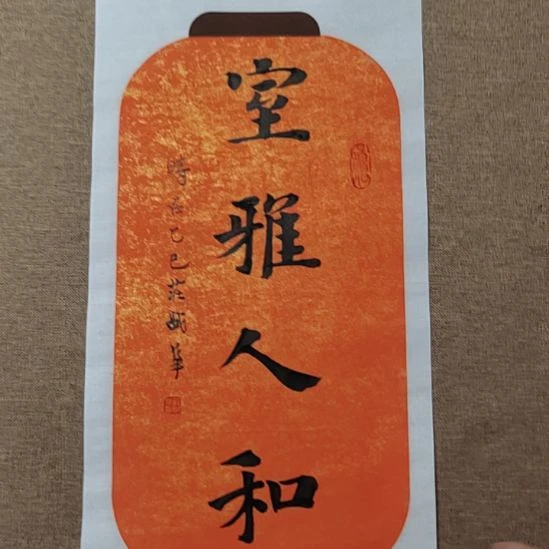 室雅人和
時在乙巳莊